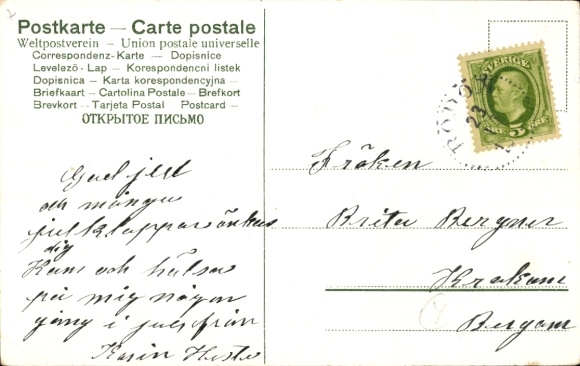 Postkarte — Carte postale
Weltpostverein — Union postale universelle
Correspondenz-Karte — Dopisnice
Levelező-Lap — Korespondencni listek
Dopisnica — Karta korespondencyjna —
Briefkaart — Cartolina Postale — Brefkort
Brevkort — Tarjeta Postal Postcard —
ОТКРЫТОЕ ПИСЬМО
SVERIGE
5
RÖDÖN
23
God jul
och många
julklappar önskas
dig
Kom och hälsa
på mig någon
gång i jul från
Karin
Fröken
Brita Bergner
Krokom